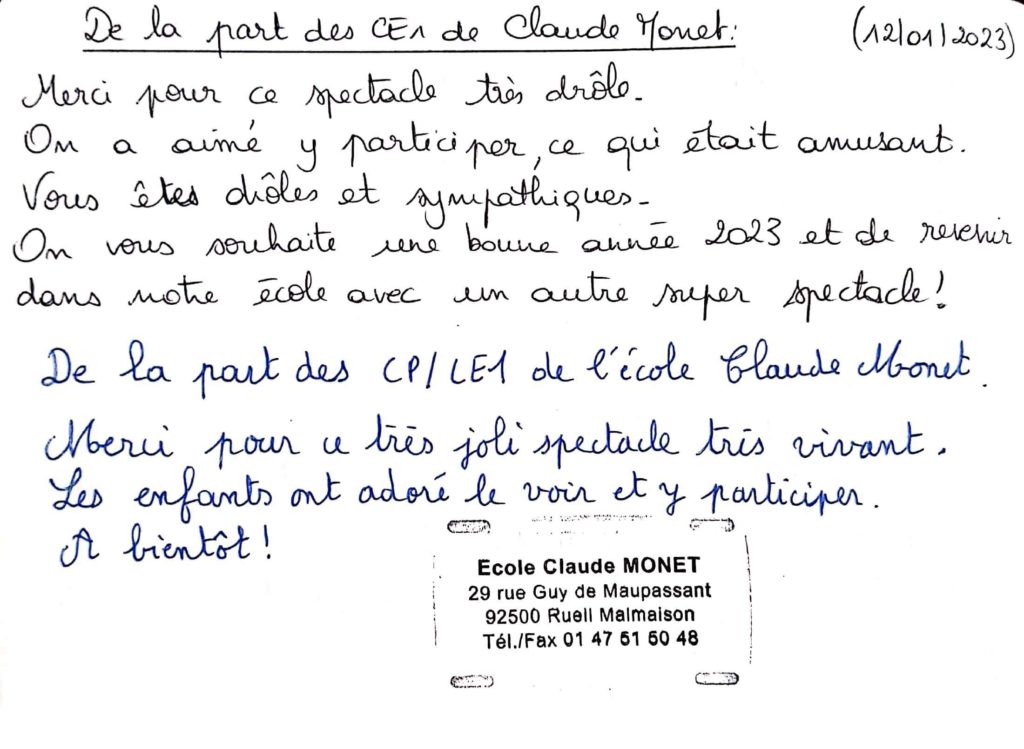 De la part des CE1 de Claude Monet: (12/01/2023)
Merci pour ce spectacle très drôle.
On a aimé y participer, ce qui était amusant.
Vous êtes drôles et sympathiques.
On vous souhaite une bonne année 2023 et de revenir
dans notre école avec un autre super spectacle!
De la part des CP/CE1 de l'école Claude Monet.
Merci pour ce très joli spectacle très vivant.
Les enfants ont adoré le voir et y participer.
A bientôt!
Ecole Claude MONET
29 rue Guy de Maupassant
92500 Rueil Malmaison
Tél./Fax 01 47 51 50 48